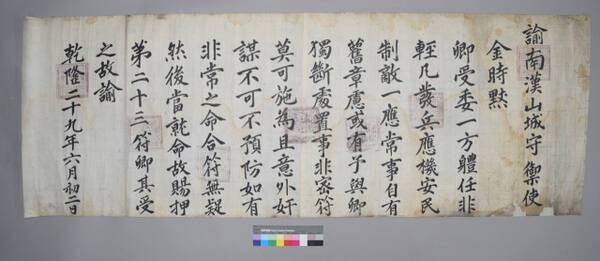 諭南漢山城守禦使
金時默
卿受委一方軆任非
輕凡發兵應機安民
制敵一應常事自有
舊章慮或有予與卿
獨斷處置事非密符
莫可施為且意外奸
謀不可不預防如有
非常之命合符無疑
然後當就命故賜押
第二十三符卿其受
之故諭
乾隆二十九年六月初二日